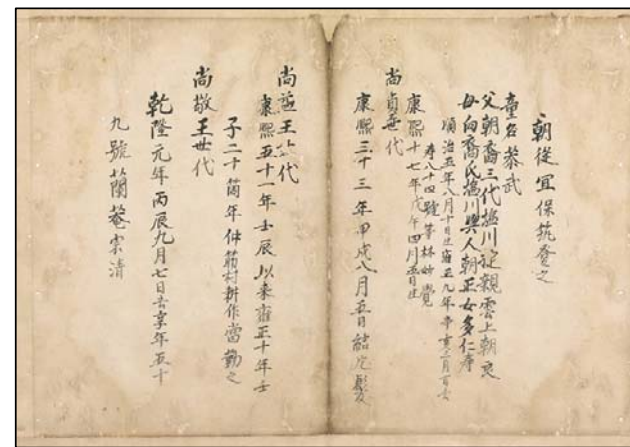 朝従宜保筑登之
童名恭武
父朝喬三代塩川親雲上朝
母向喬氏塩川與人朝正女多仁
順治五年八月十日生雍正九年辛亥三月
寿八十四號等林妙覺
康熙十七年戊午四月五日生
尚貞世代
康熙三十三年甲戌八月五日結片髪
尚益王世代
康熙五十一年壬辰以来雍正十年壬
子二十箇年仲筋村耕作當勤之
尚敬王世代
乾隆元年丙辰九月七日去享年五十
九號蘭菴宗清